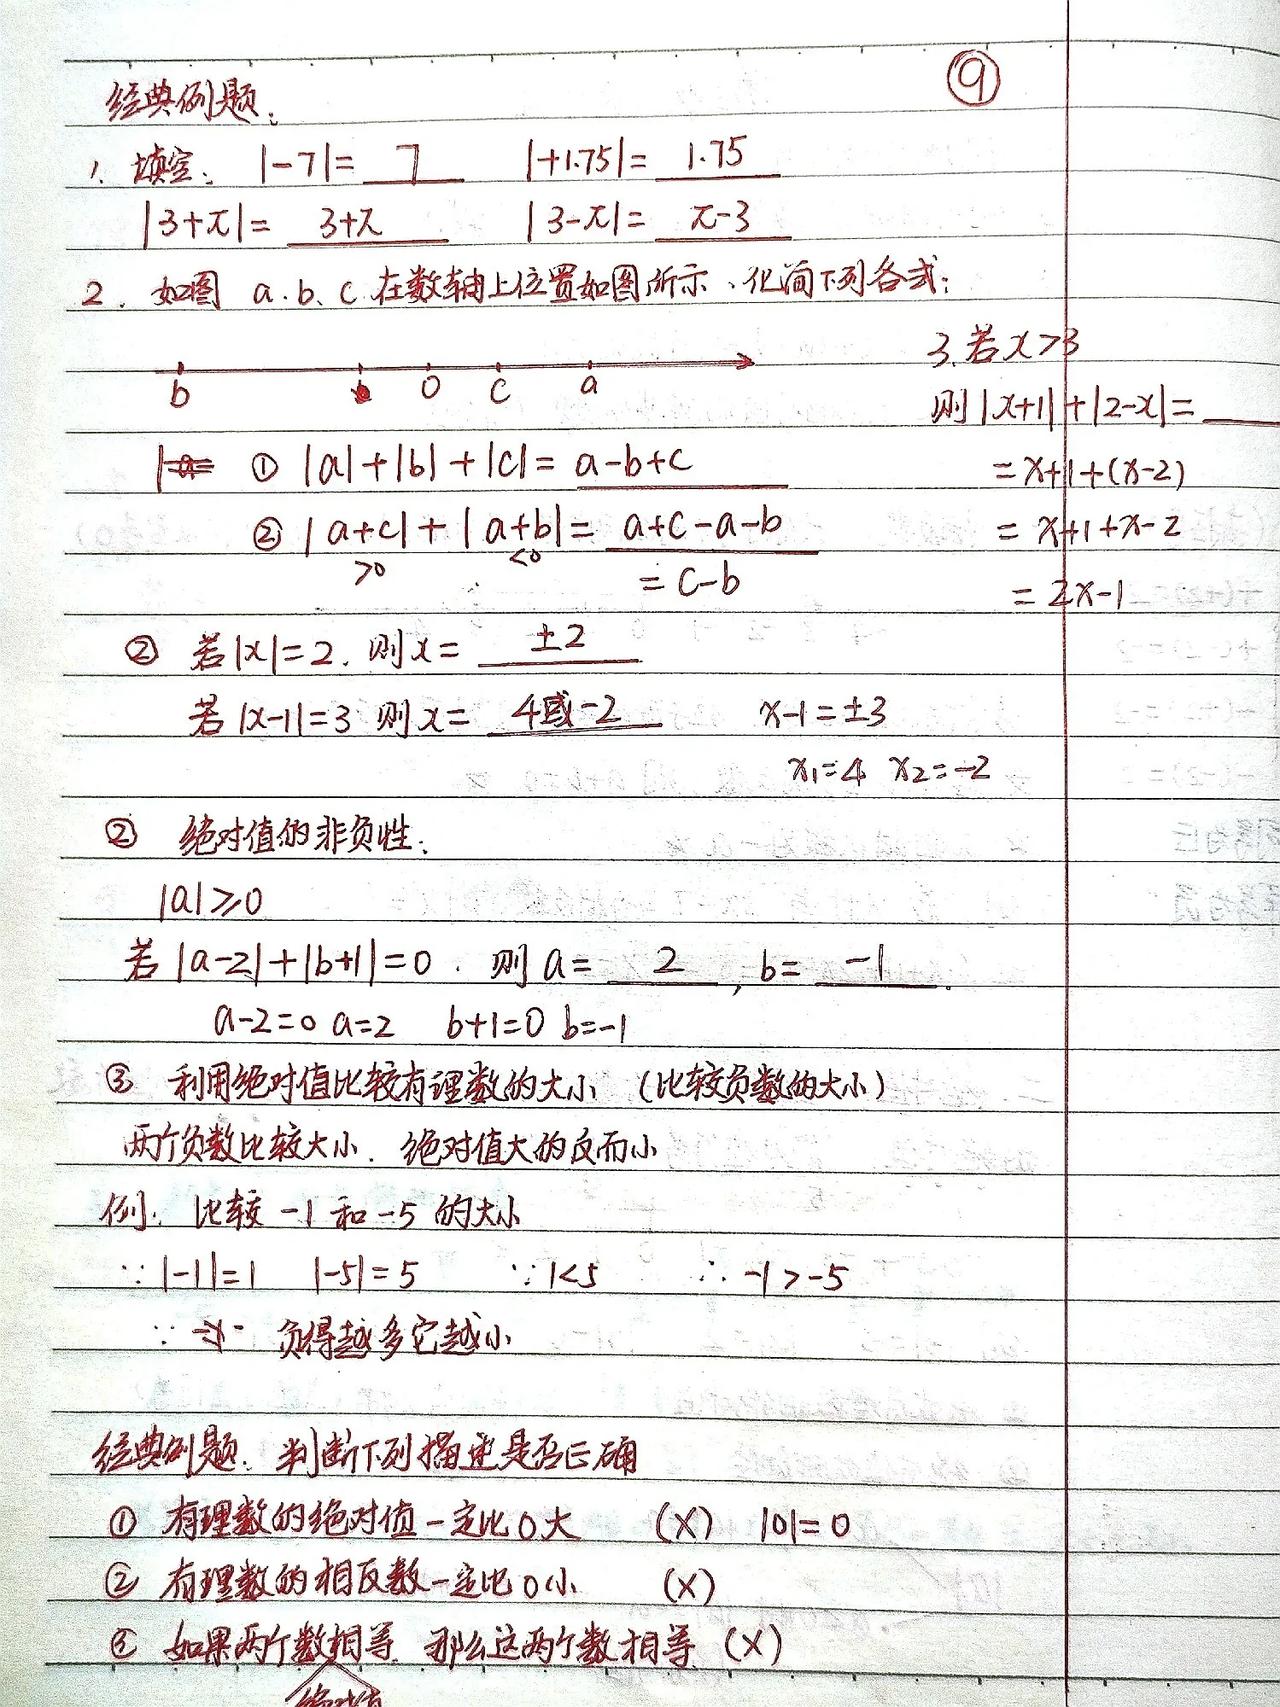 ⑨
经典例题:
1. 填空: |-7|= 7 |+1.75|= 1.75
|3+π|= 3+π |3-π|= π-3
2. 如图 a.b、c 在数轴上位置如图所示、化简下列各式:
b 0 c a
① |a|+|b|+|c|= a-b+c
② |a+c|+|a+b|= a+c-a-b
>0 <0
= c-b
3. 若x>3
则|x+1|+|2-x|=
=x+1+(x-2)
= x+1+x-2
= 2x-1
② 若|x|=2. 则x= ±2
若|x-1|=3 则x= 4或-2 x-1=±3
x₁=4 x₂=-2
② 绝对值的非负性:
|a|≥0
若|a-2|+|b+1|=0. 则a= 2, b= -1.
a-2=0 a=2 b+1=0 b=-1
③ 利用绝对值比较有理数的大小 (比较负数的大小)
两个负数比较大小. 绝对值大的反而小
例: 比较 -1 和 -5 的大小
∵|-1|=1 |-5|=5 ∵1<5 ∴ -1>-5
∵ 负得越多它越小
经典例题: 判断下列描述是否正确
① 有理数的绝对值一定比0大 (X) |0|=0
② 有理数的相反数一定比0小. (X)
③ 如果两个数相等. 那么这两个数相等 (X)
绝对值